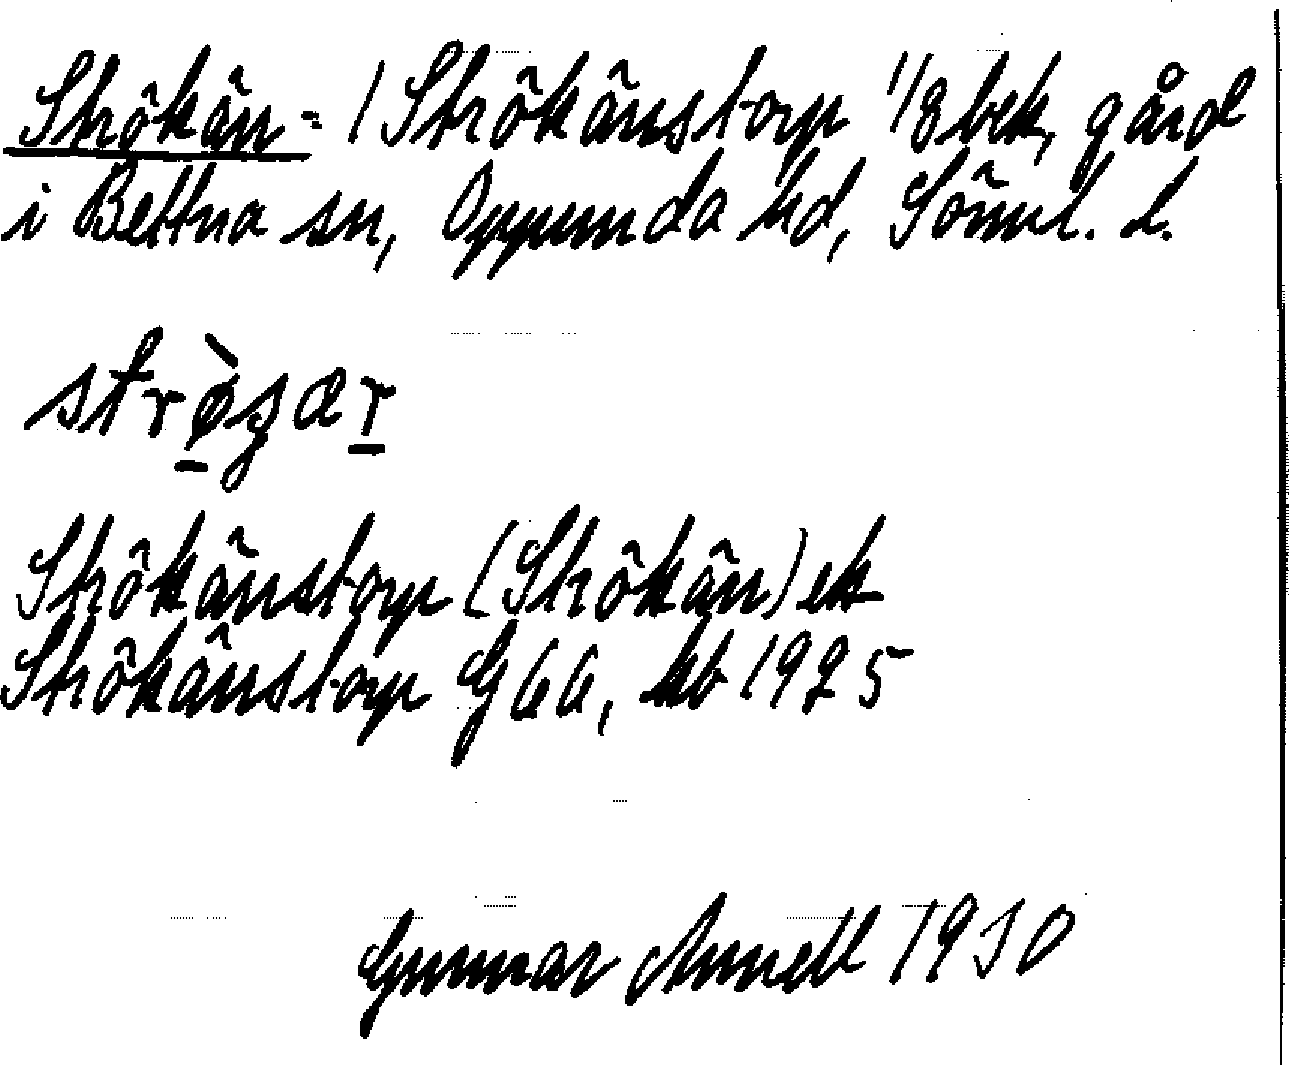 Strökärr = 1 Strökärrstorp 1/8 bek, gård
i Bettna sn, Oppunda hd, Söml. l.
strø̠̀gær̠
Strökärrstorp (Strökärr) ek
Strökärrstorp G 66, kb 1925
Gunnar Annell 1930